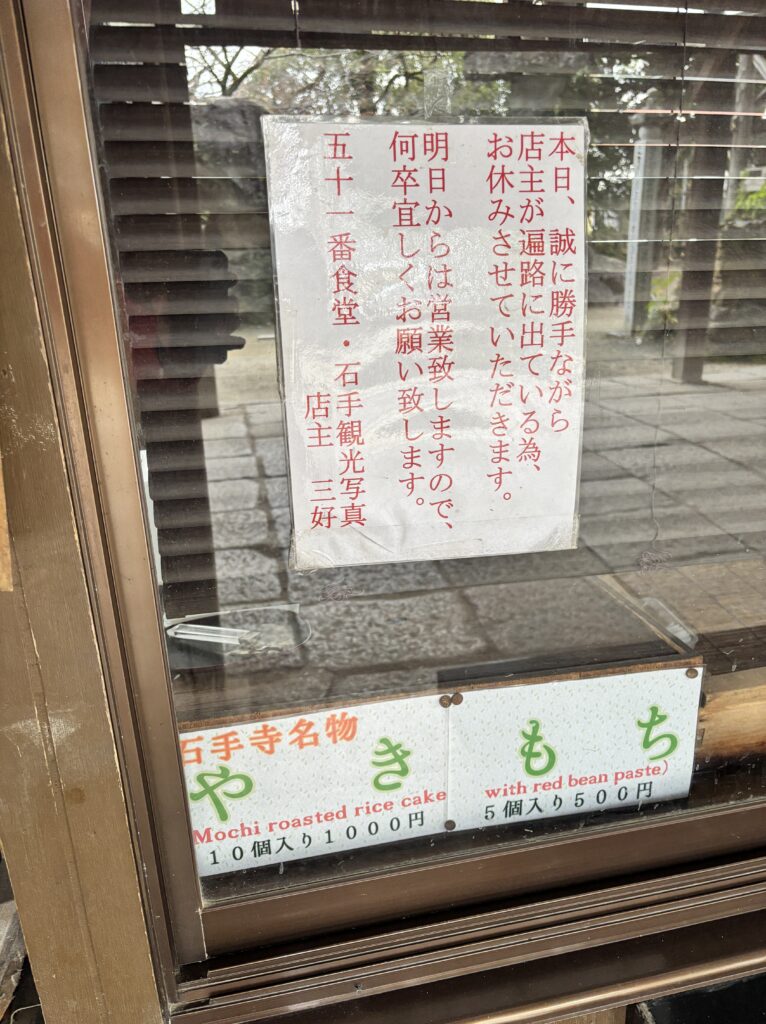 本日、誠に勝手ながら
店主が遍路に出ている為、
お休みさせていただきます。
明日からは営業致しますので、
何卒宜しくお願い致します。
五十一番食堂・石手観光写真
店主 三好
石手寺名物
やきもち
Mochi roasted rice cake
with red bean paste)
10個入り1000円
5個入り500円